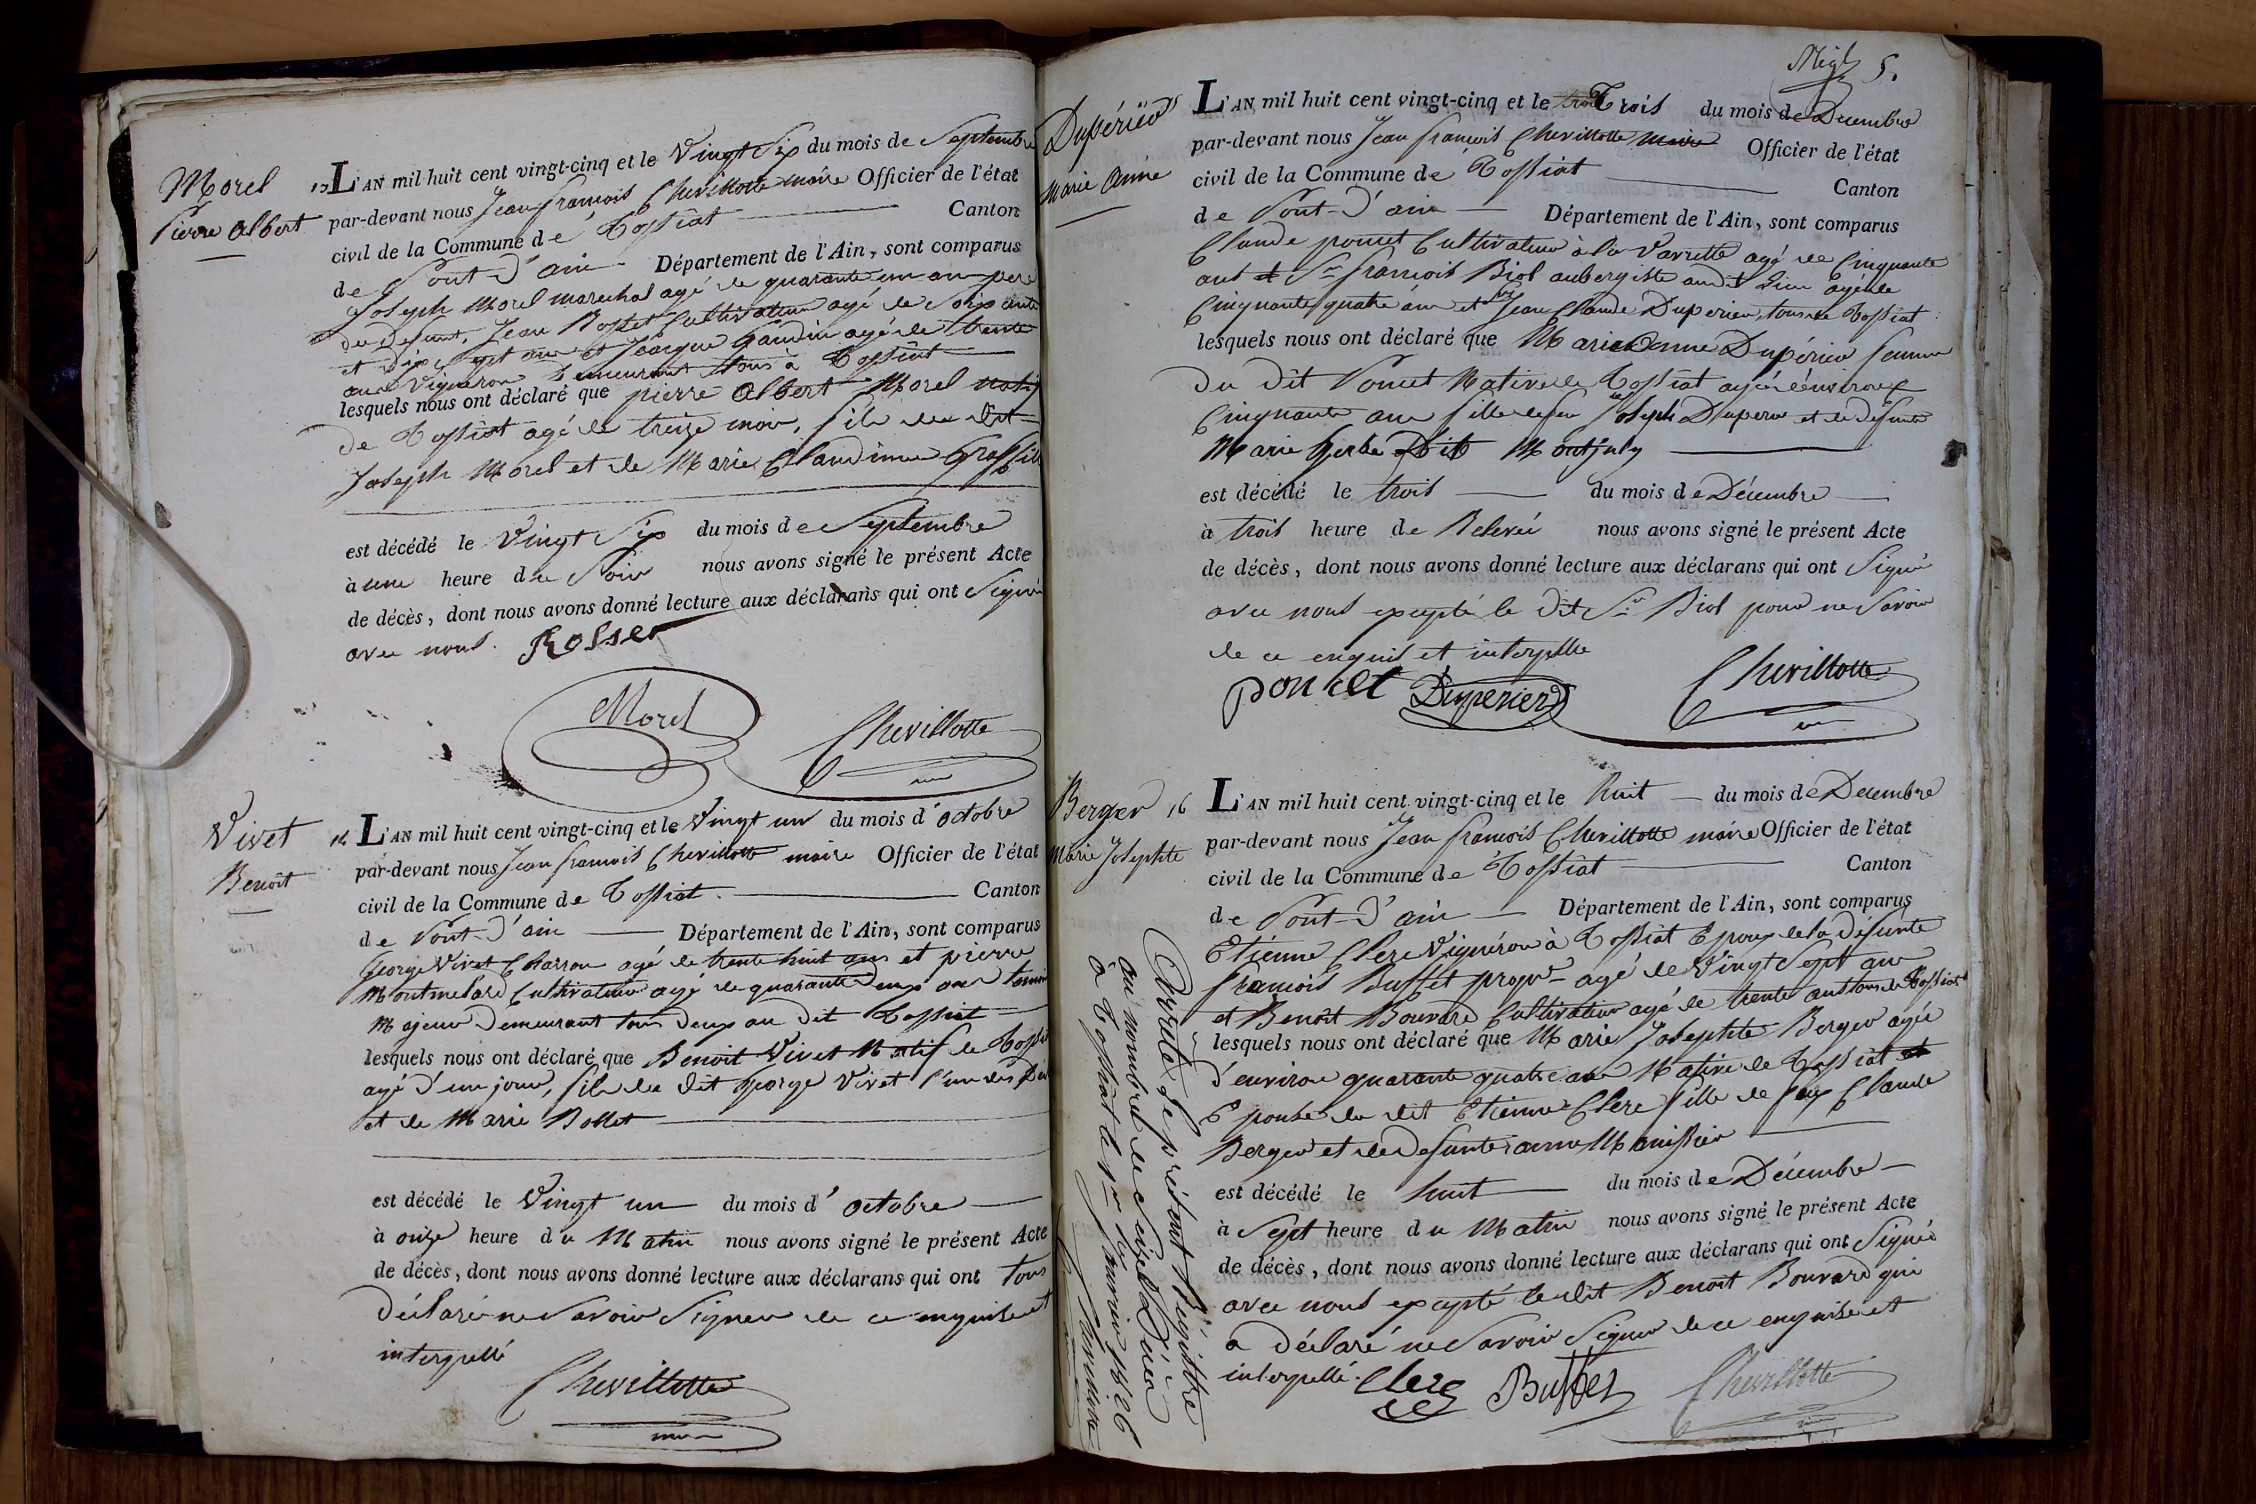 Morel
Pierre Albert
L'AN mil huit cent vingt-cinq et le Vingt Six du mois de Septembre
par-devant nous Jean françois Chevillotte maire Officier de l'état
civil de la Commune de Tossiat Canton
de Pont-d'ain Département de l'Ain, sont comparus
Joseph Morel marechal agé de quarante un an pere
du Defunt, Jean Rosset Cultivateur agé de Soixante
et dix Sept ans et Jacque Gaudin agé de trente
ans Vigneron demeurant tous à Tossiat
lesquels nous ont déclaré que pierre Albert Morel natif
de Tossiat agé de treize mois, fils du dit
Joseph Morel et de Marie Claudine
est décédé le Vingt Six du mois de Septembre
à une heure du Soir nous avons signé le présent Acte
de décès, dont nous avons donné lecture aux déclarans qui ont Signé
avec nous. Rosset
Morel
Chevillotte
Vivet
Benoit
14 L'AN mil huit cent vingt-cinq et le Vingt un du mois d'octobre
par-devant nous Jean françois Chevillotte maire Officier de l'état
civil de la Commune de Tossiat Canton
de Pont-d'ain Département de l'Ain, sont comparus
George Vivet Charron agé de trente huit ans et pierre
Montmelard Cultivateur agé de quarante deux ans temoin
Majeur Demeurant tous deux au dit Tossiat
lesquels nous ont déclaré que Benoit Vivet Natif de Tossiat
agé d'un jour, fils du dit George Vivet l'un des
et de Marie Bollet
est décédé le Vingt un du mois d'octobre
à onze heure du Matin nous avons signé le présent Acte
de décès, dont nous avons donné lecture aux déclarans qui ont tous
Déclaré ne Savoir Signer de ce enquis et
interpellé
Chevillotte
5.
Dupérier
Marie Anne
L'AN mil huit cent vingt-cinq et le Trois du mois de Decembre
par-devant nous Jean françois Chevillotte maire Officier de l'état
civil de la Commune de Tossiat Canton
de Pont-d'ain Département de l'Ain, sont comparus
Claude poncet Cultivateur à la Varette agé de Cinquante
ans et Sr françois Biol aubergiste audit Lieu agé de
Cinquante quatre ans et Jean Claude Duperier, tous de Tossiat
lesquels nous ont déclaré que Marie Anne Dupérier femme
du dit Poncet Native de Tossiat agée d'environs
Cinquante ans fille de feu Joseph Duperier et de défunte
Marie Dit Montjuly
est décédé le trois du mois de Décembre
à trois heure de Relevée nous avons signé le présent Acte
de décès, dont nous avons donné lecture aux déclarans qui ont Signé
avec nous excepté le dit Sr Biol pour ne Savoir
de ce enquis et interpellé
poncet Duperier Chevillotte
Berger
Marie Josephte
16 L'AN mil huit cent vingt-cinq et le huit du mois de Decembre
par-devant nous Jean françois Chevillotte maire Officier de l'état
civil de la Commune de Tossiat Canton
de Pont-d'ain Département de l'Ain, sont comparus
Etienne Clerc Vignéron à Tossiat Epoux de la Défunte
françois Buffet propre agé de Vingt Sept ans
et Benoît Bouvard Cultivateur agé de trente ans tous de Tossiat
lesquels nous ont déclaré que Marie Josephte Berger agée
d'environ quarante quatre ans Native de Tossiat et
Epouse du dit Etienne Clerc fille de feu Claude
Berger et de Defunte anne Manissier
est décédé le huit du mois de Décembre
à Sept heure du Matin nous avons signé le présent Acte
de décès, dont nous avons donné lecture aux déclarans qui ont Signé
avec nous excepté le dit Benoit Bouvard qui
a Déclaré ne Savoir Signer de ce enquis et
interpellé. Clerc Buffet Chevillotte
Arrêté le présent Régistre
au nombre de Seize Décès
à Tossiat le 1er Janvier 1826
Chevillotte